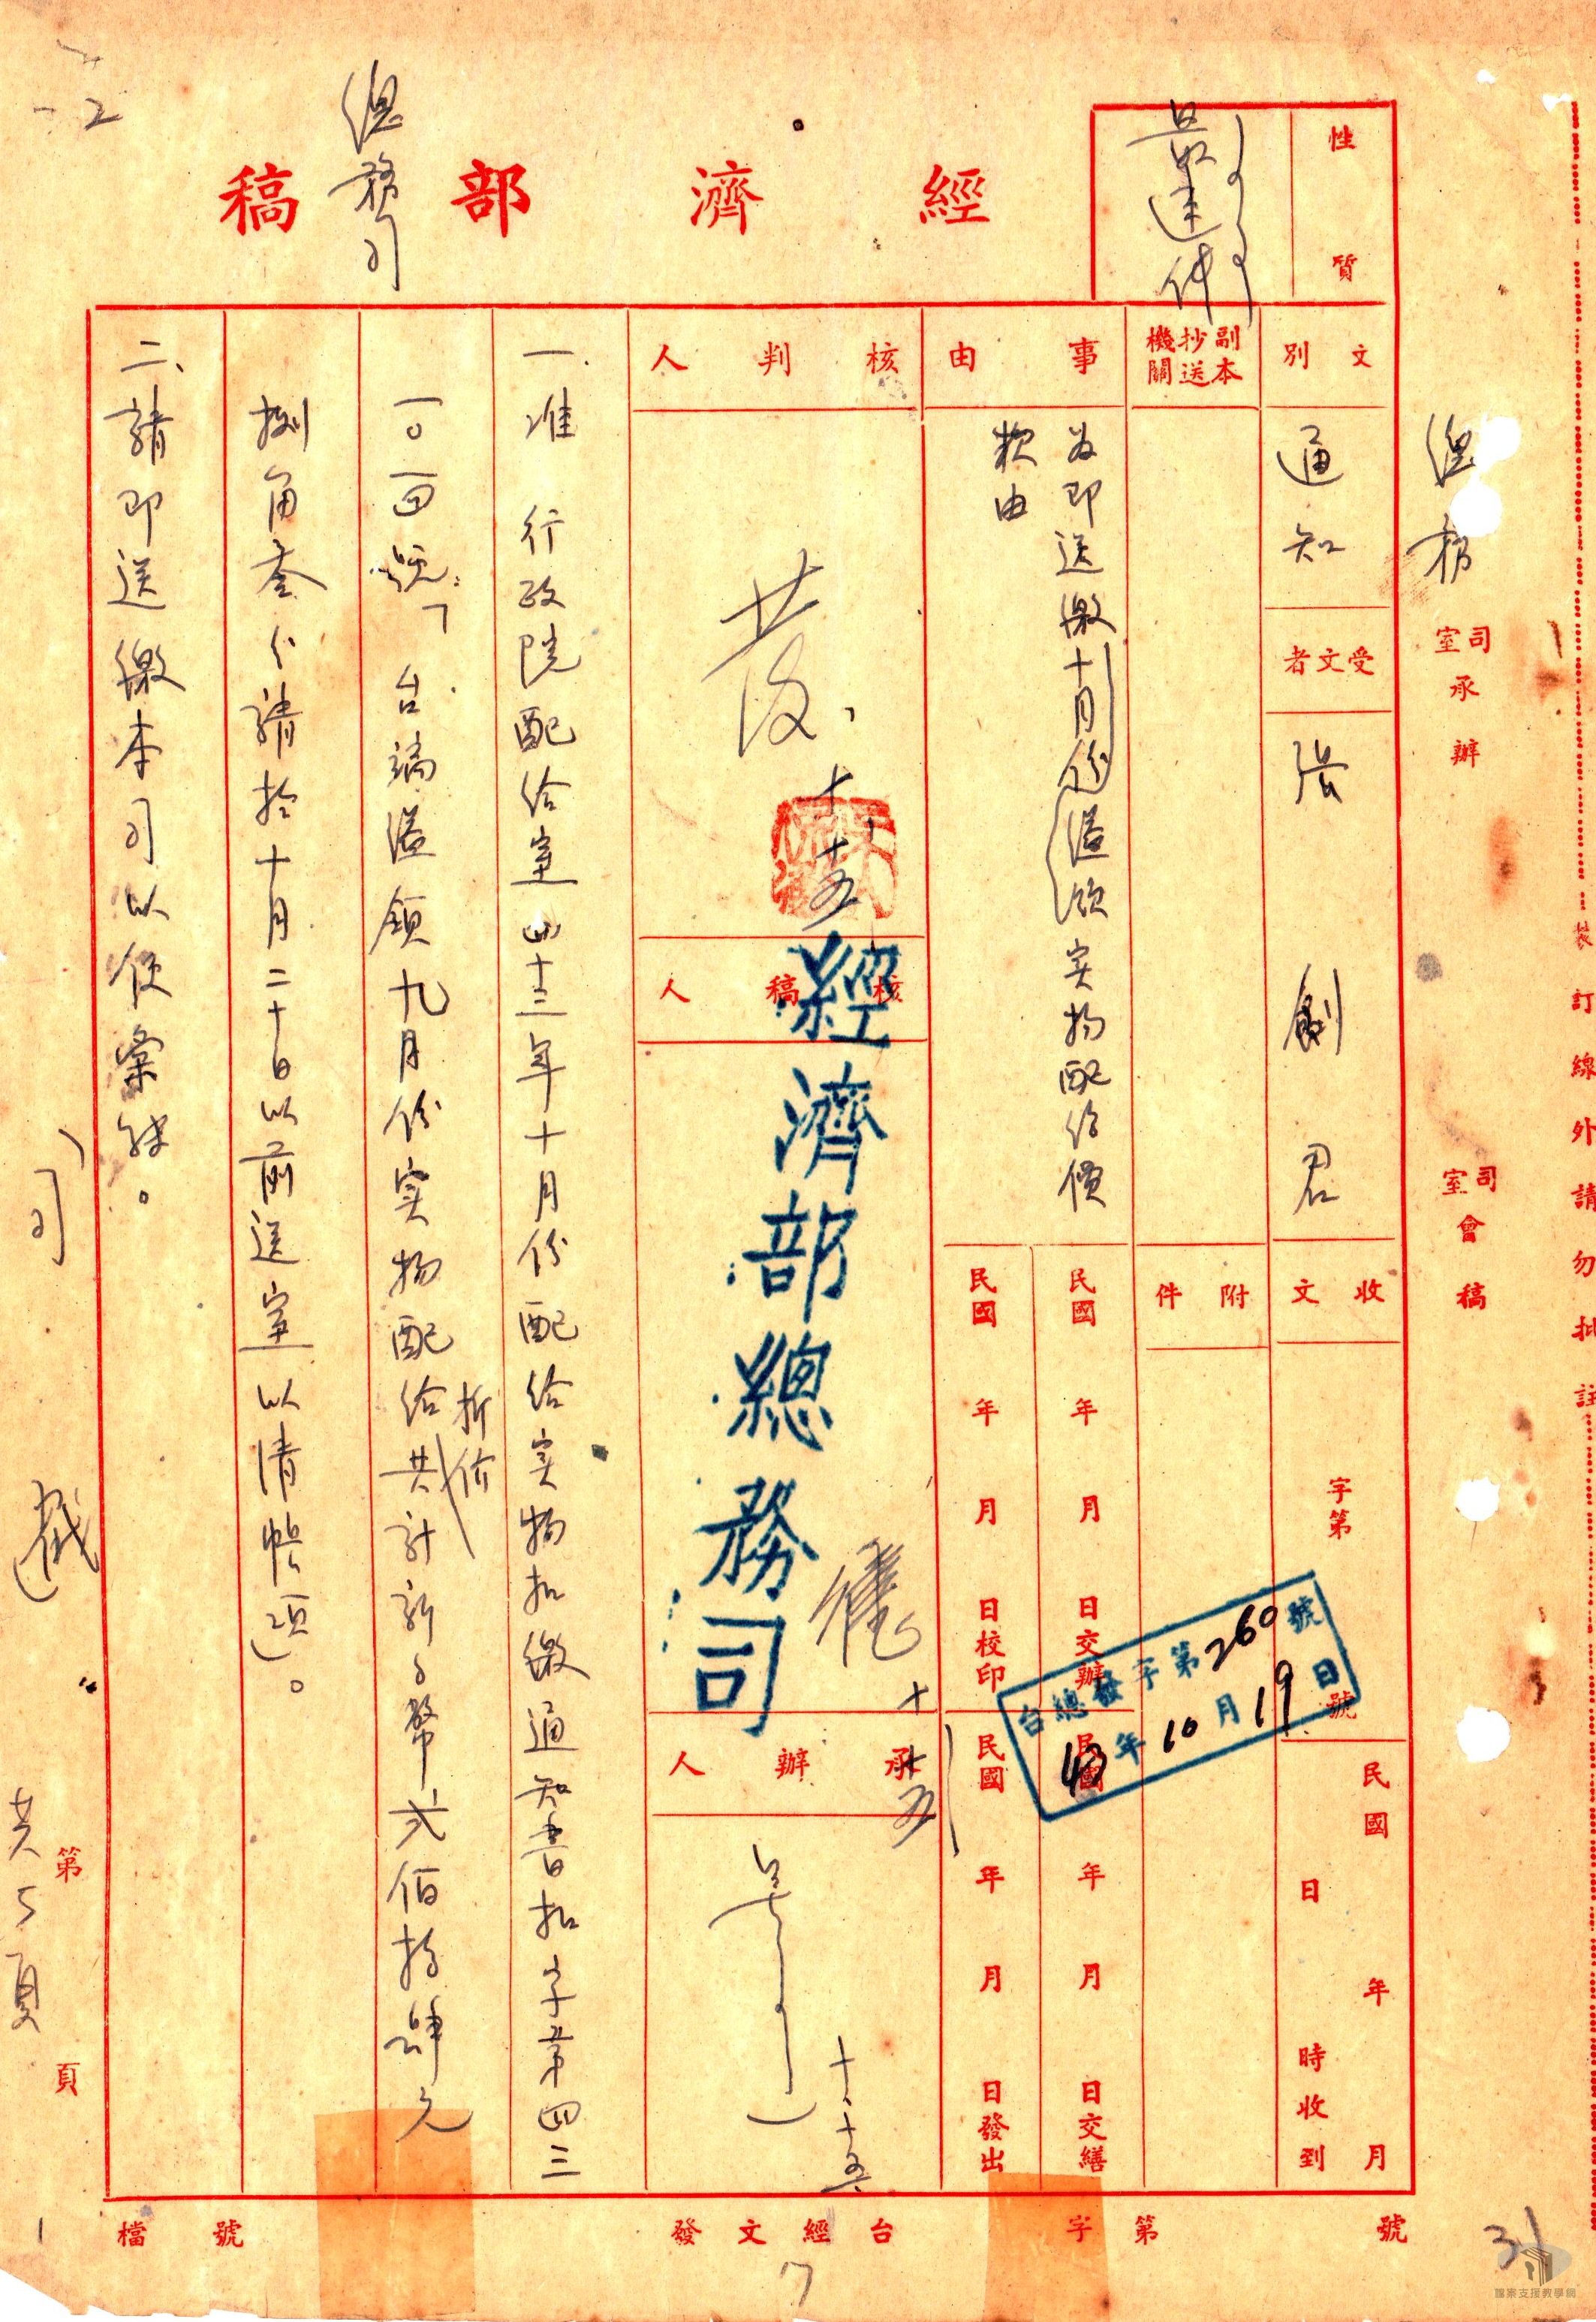 經濟部稿
總務司
性質
最速件
總務
司室承辦
司室會稿
裝訂線外請勿批註
文別
通知
受文者
張劍君
收文
字第
號
民國
年
月
日
時收到
副本抄送機關
附件
事由
為即送繳十月份溢領实物配給價
款由
民國 年 月 日交辦
民國 年 月 日交繕
民國 年 月 日校印
民國 年 月 日發出
台總發字第260號
43年10月19日
核判人
十、十五
核稿人
經濟部總務司
十、十五
承辦人
十、十五
一、准 行政院配給室四十三年十月份配給实物扣繳通知書扣字第四三
一〇一四號:「台端溢領九月份实物配給折价共計新台幣弍佰拾肆元
捌角叁分請於十月二十日以前送室以清帳項」。
二、請即送繳本司以便彙辦。
第
頁
檔號
台經文發
字第
號
31
檔案支援教學網